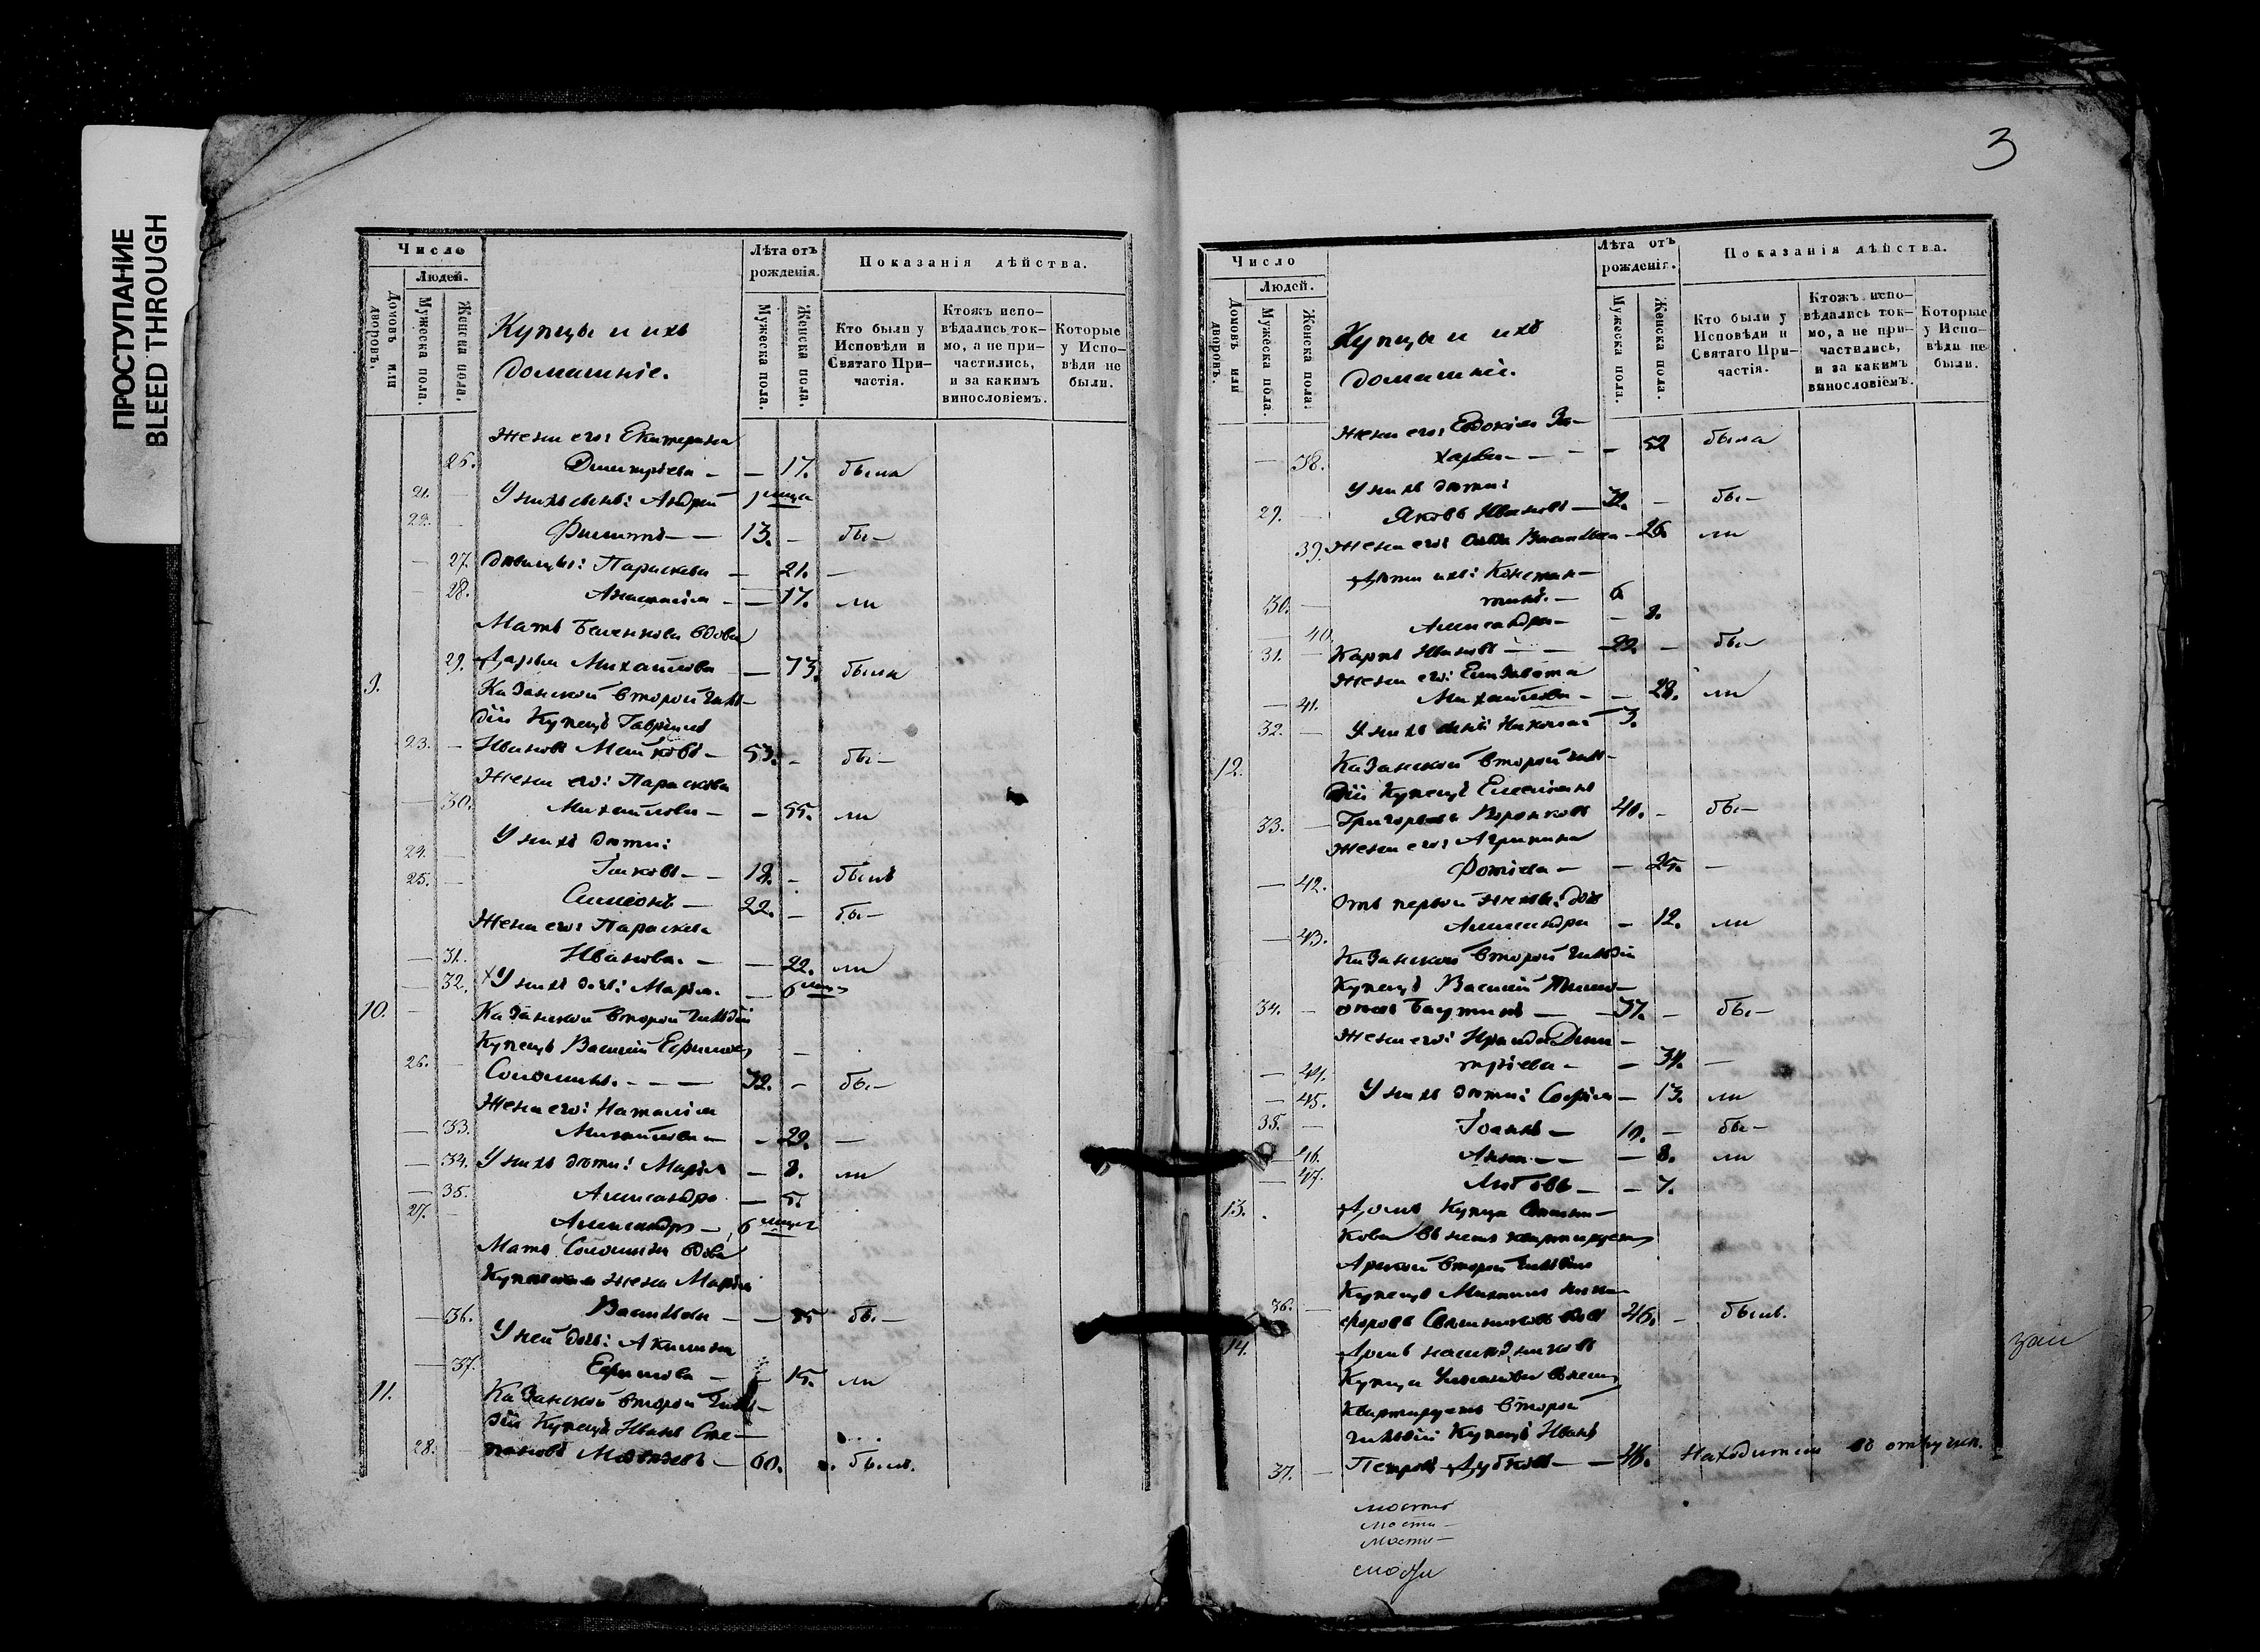 ПРОСТУПАНИЕ
BLEED THROUGH
3
Число
Людей.
Домовъ или дворовъ.
Мужеска пола.
Женска пола.
Купцы и ихъ
домашніе.
Лѣта отъ
рожденія.
Мужеска пола.
Женска пола.
Показанія дѣйства.
Кто были у
Исповѣди и
Святаго При-
частія.
Ктожъ испо-
вѣдались ток-
мо, а не при-
частились,
и за какимъ
винословіемъ.
Которые
у Испо-
вѣди не
были.
Жена его: Екатерина
26. Димитріева — — 17. была
21. — У нихъ сынъ: Андрей 1 мѣсяца
22. — Филиппъ — — 13. — бы —
— 27. дѣвицы: Параскева — 21. —
— 28. Анастасія — — 17. ли
Мать вдова
29. Дарья Михайлова — — 73. была
9. Казанской второй гиль-
діи Купецъ Гавріилъ
23. — Ивановъ — 53. — бы —
Жена его: Параскева
— 30. Михайлова — — 55. ли
У нихъ дѣти:
24. — Іаковъ — — 18. — былъ
25. — Симеонъ — 22. — бы —
Жена его: Параскева
— 31. Иванова. — — 22. ли
— 32. У нихъ дочь: Марія. — 6 мѣс
10. — Казанской второй гильдіи
Купецъ Василій Ефимовъ
26. — Соломинъ. — — — 32. — бы —
Жена его: Наталія
— 33. Михайлова — — 29. —
— 34. У нихъ дѣти: Марія — 8. ли
— 35. Александра — 5.
27. — Александръ — 6 мѣсяц
Мать вдова
жена Марія
— 36. Васильева — — 55 бы —
У ней дочь: Акилина
— 37. Ефимова — — 15. ли
11. Казанской второй гиль-
діи Купецъ Иванъ Сте-
28. — пановъ — 60. былъ.
Число
Людей.
Домовъ или дворовъ.
Мужеска пола.
Женска пола.
Купцы и ихъ
домашніе.
Лѣта отъ
рожденія.
Мужеска пола.
Женска пола.
Показанія дѣйства.
Кто были у
Исповѣди и
Святаго При-
частія.
Ктожъ испо-
вѣдались ток-
мо, а не при-
частились,
и за какимъ
винословіемъ.
Которые
у Испо-
вѣди не
были.
Жена его: Евдокія За-
— 38. харова — — — — 52 была
У нихъ дѣти:
29. — Яковъ Ивановъ — 32. — бы —
39. Жена его: Васильева — 26. ли
Дѣти ихъ: Констан-
30. — тинъ. — 6.
— 40. Александра — — 8.
31. — Карпъ Ивановъ — — 29. — бы
Жена его: Елизавета
— 41. Михайлова — — 28. ли
32. — У нихъ сынъ Николай 3.
12. Казанской второй гиль-
діи Купецъ
33. — Григорьевъ 40. — бы —
Жена его: Агрипина
— 42. Фотіева — — 25. —
Отъ первой жены: дочь
— 43. Александра — 12. ли
Казанской второй гильдіи
Купецъ Василій
34. — — 37. — бы —
Жена его: Ираида Дими-
— 44. тріева — — 34. —
— 45. У нихъ дѣти: Софія — 13. ли
35. — Іоаннъ — 10. — бы —
— 46. Анна — — — 8. ли
— 47. Любовь — — 7.
13. Домъ Купца
въ немъ квартируетъ
Арской второй гильдіи
Купецъ Михаилъ Ники-
36. — форовъ 46. — былъ.
14. Домъ наслѣдниковъ
Купца въ немъ
квартируетъ второй
гильдіи Купецъ Иванъ
37. — Петровъ — 48. Находится въ отлучк.